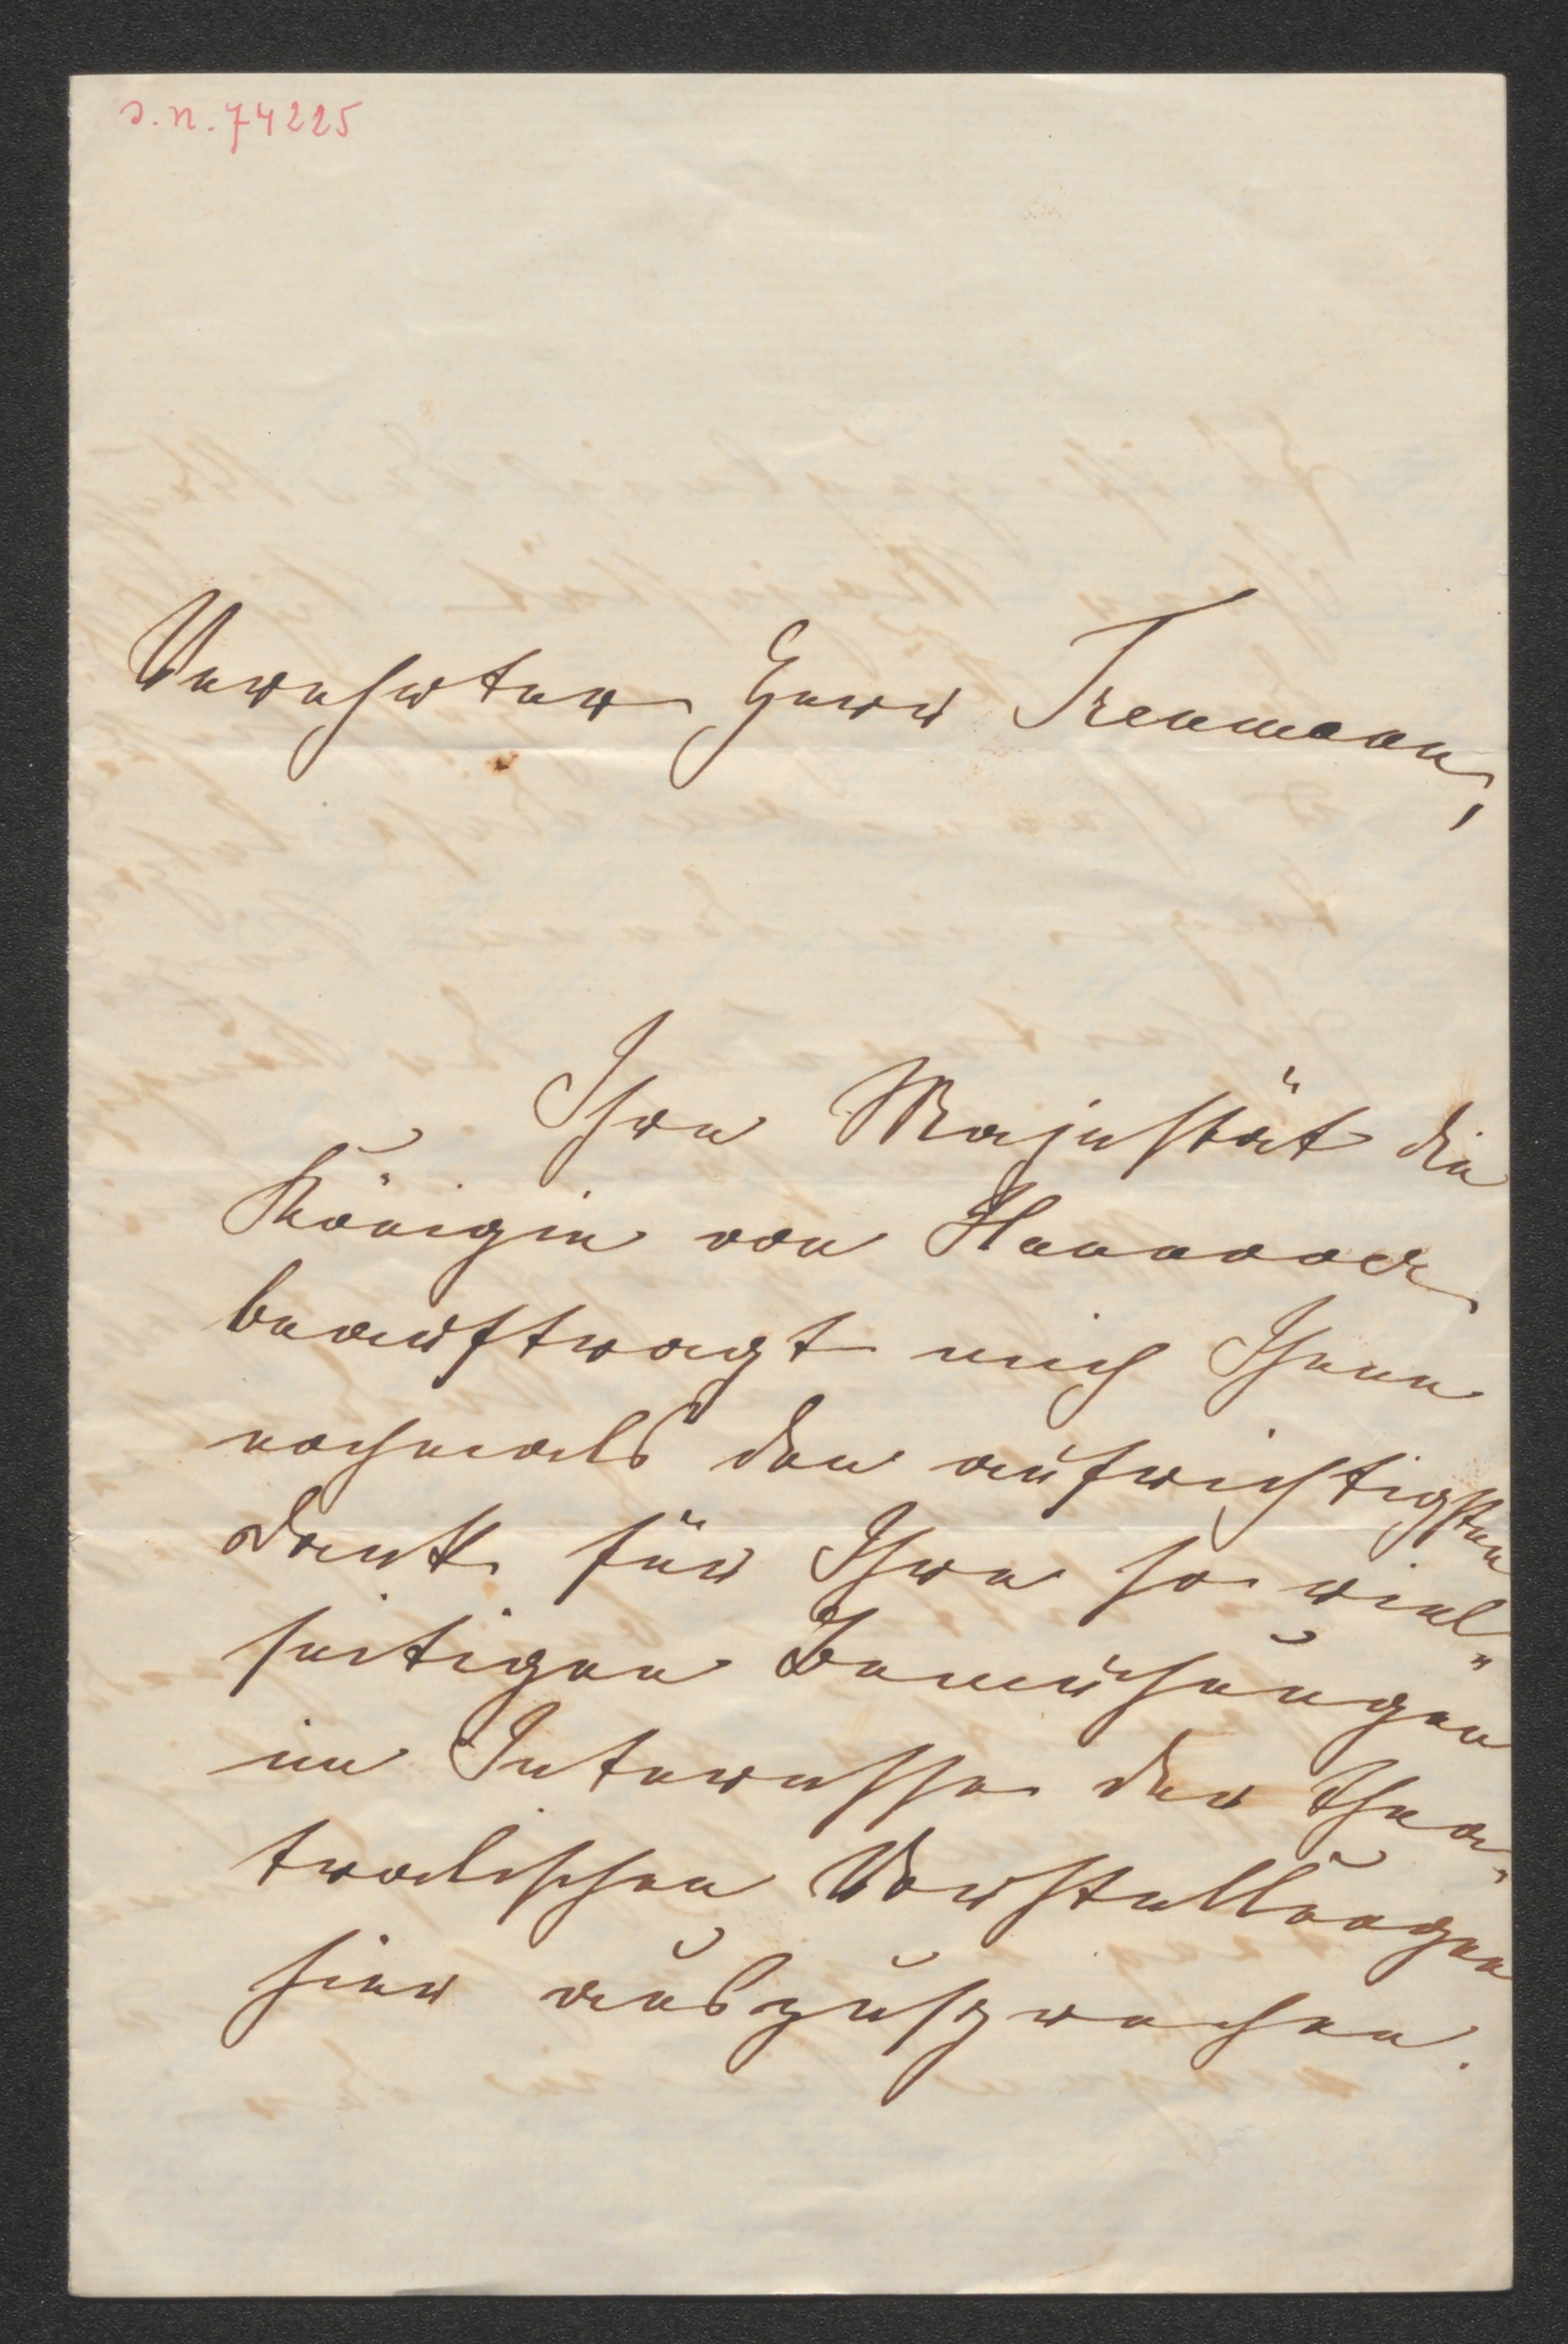 s. n. 74225
Verehrter Herr Treumann,
Ihre Majestät die
Königin von Hannover
beauftragt mich Ihnen
nochmals den aufrichtigsten
Dank für Ihre so viel„
seitigen Bemühungen
im Interesse der thea„
tralischen Vorstellungen
hier auszusprechen.